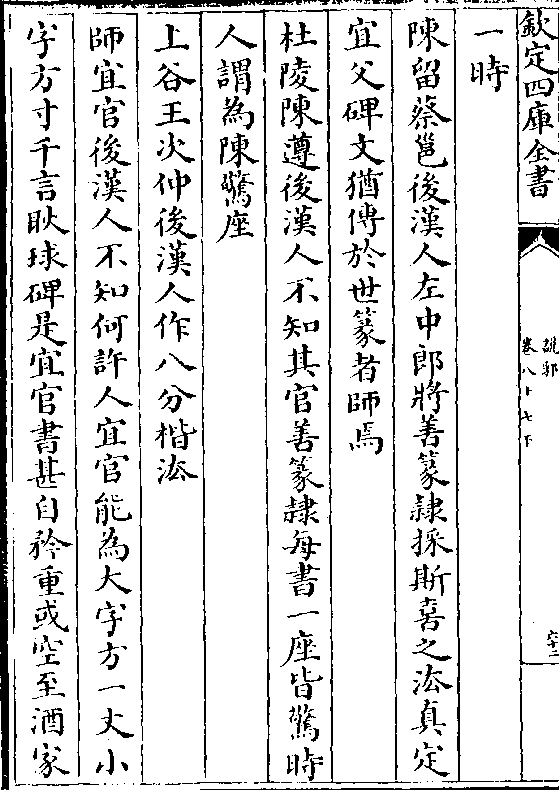 欽定四庫全書
說郛
卷八十七下
六十二
一時
陳留蔡邕後漢人左中郎將善篆隸採斯喜之法真定
宜父碑文猶傳於世篆者師焉
杜陵陳遵後漢人不知其官善篆隸每書一座皆驚時
人謂為陳驚座
上谷王次仲後漢人作八分楷法
師宜官後漢人不知何許人宜官能為大字方一丈小
字方寸千言耿球碑是宜官書甚自矜重或空至酒家